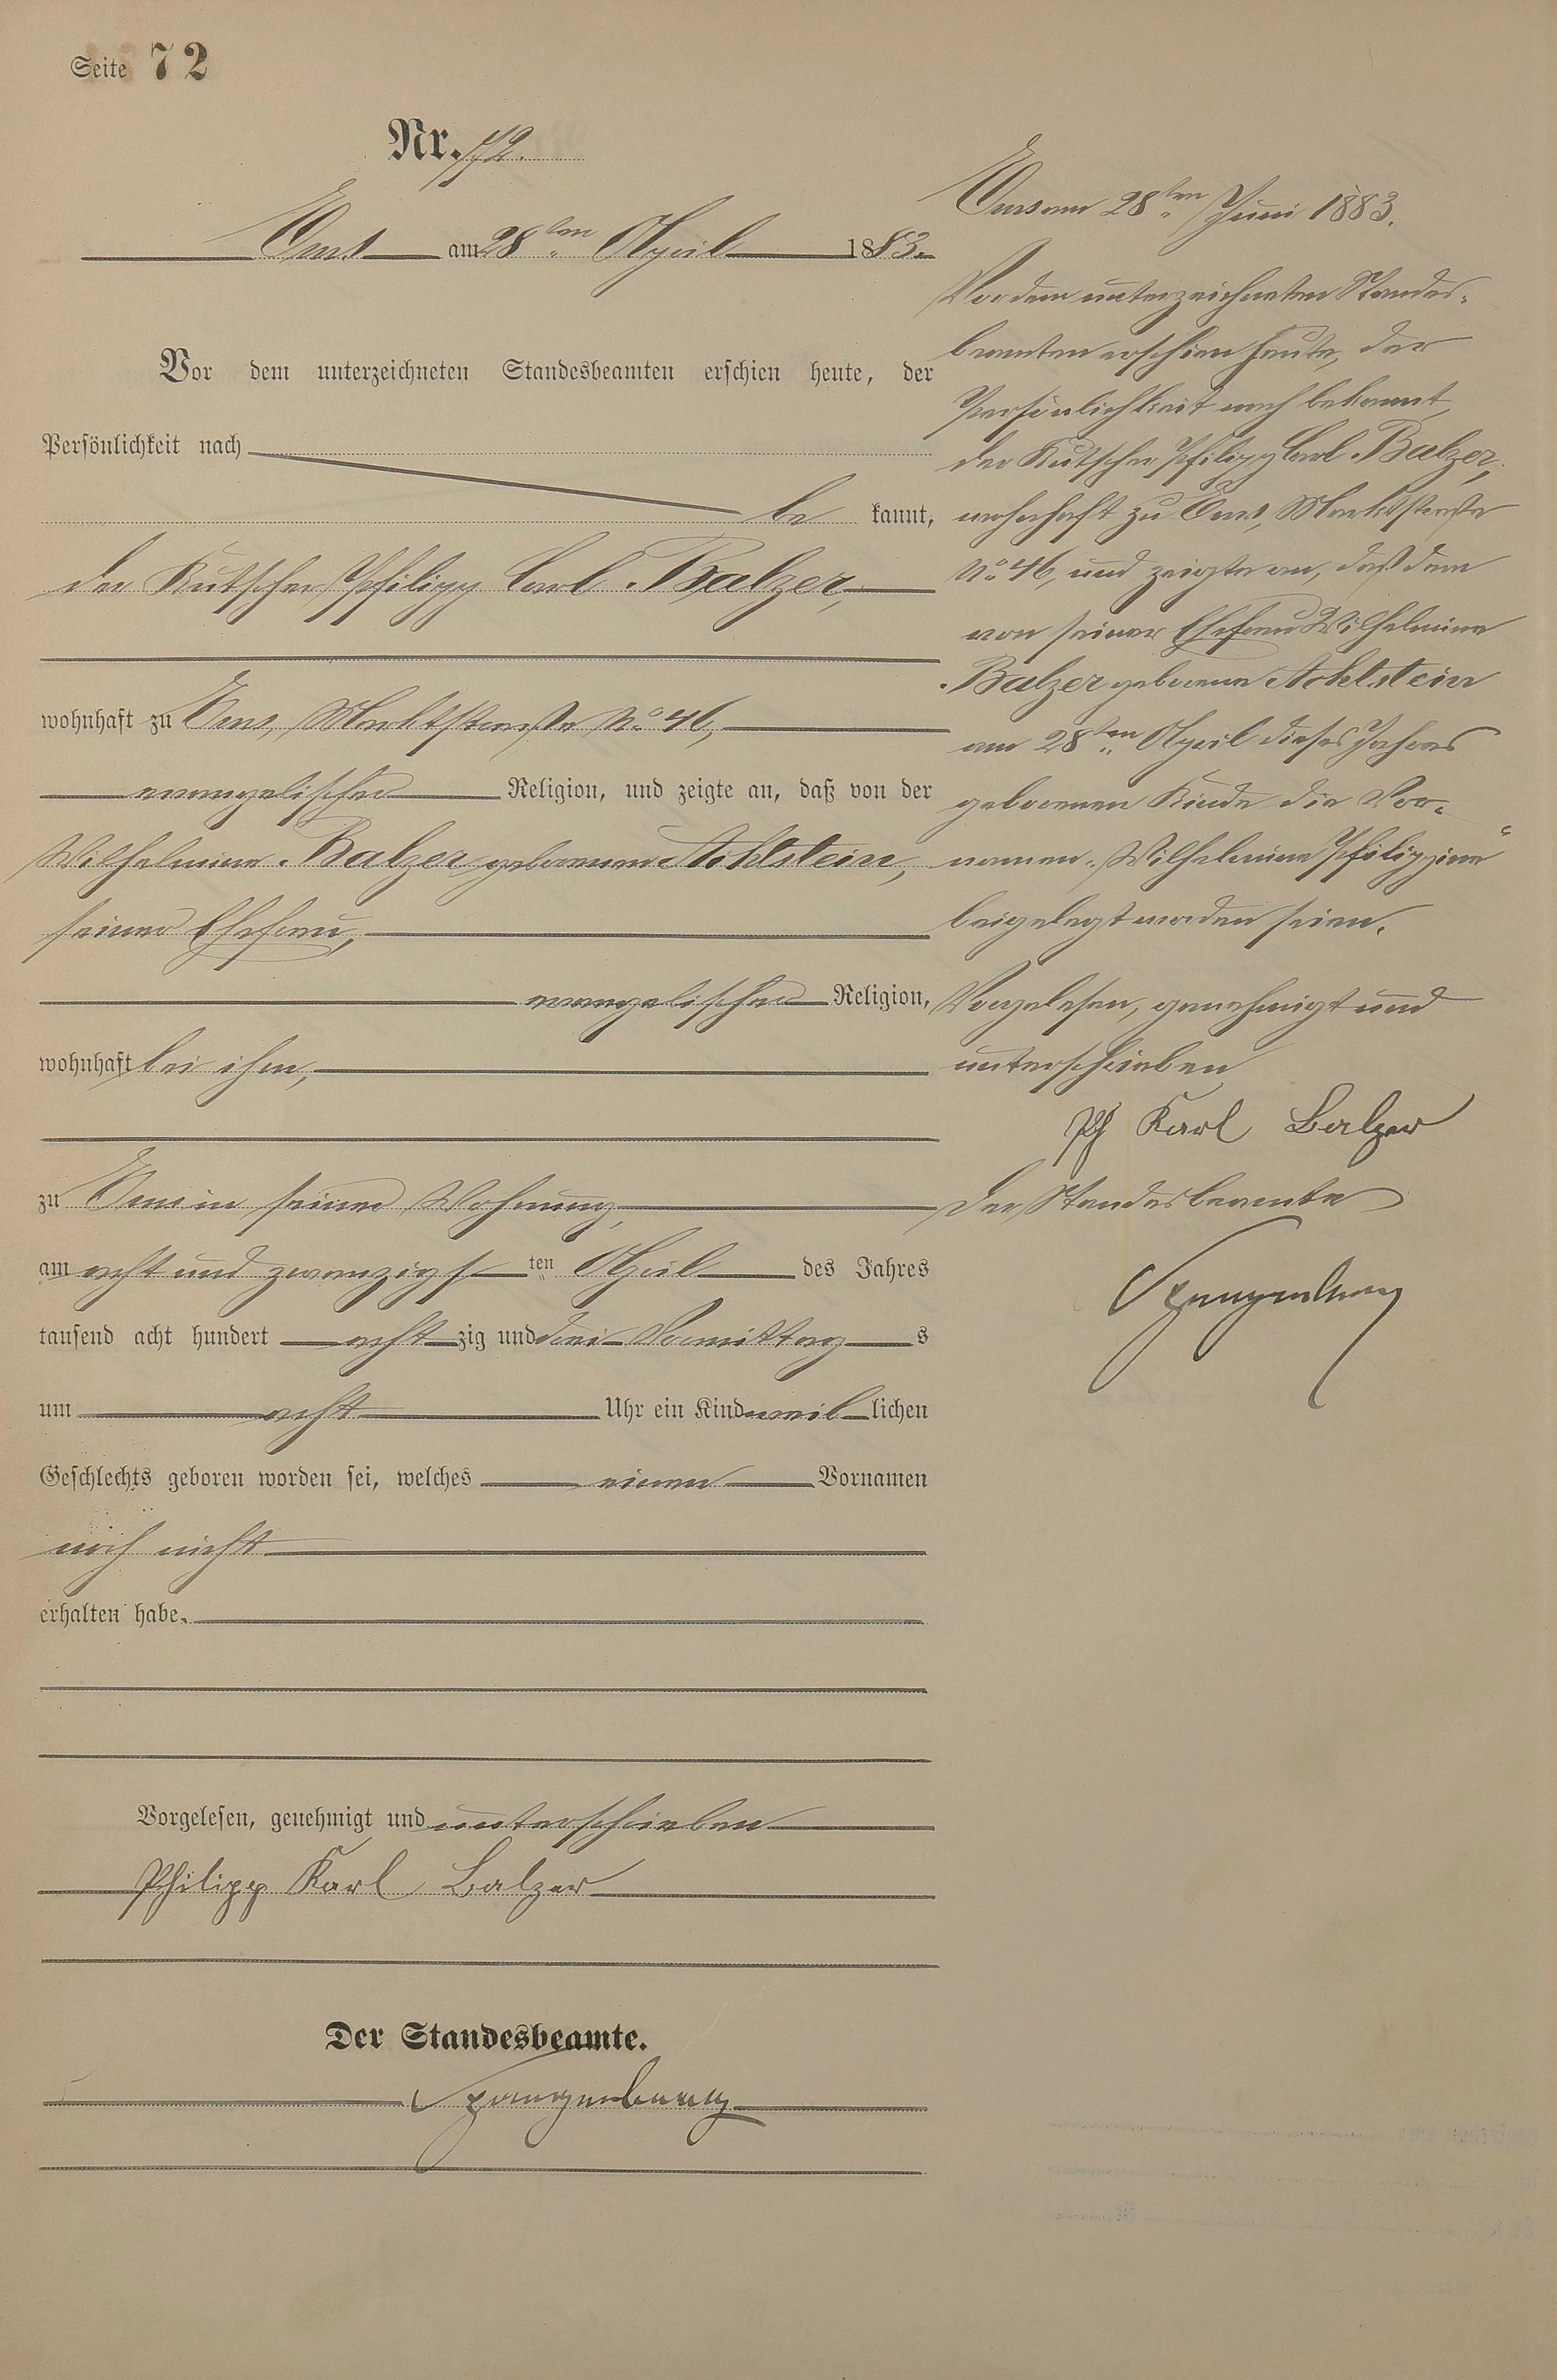 Seite 72
Nr. 72.
Ems am 28ten April 1883.
Vor dem unterzeichneten Standesbeamten erschien heute, der
Persönlichkeit nach
be kannt,
der Kutscher Philipp Carl Balzer,
wohnhaft zu Ems, Marktstraße No 46,
evangelischer Religion, und zeigte an, daß von der
Wilhelmine Balzer geborenen Achtstein,
seiner Ehefrau,
evangelischer Religion,
wohnhaft bei ihm,
zu Ems in seiner Wohnung,
am acht und zwanzigsten April des Jahres
tausend acht hundert achtzig und drei Vormittags
um acht Uhr ein Kind weiblichen
Geschlechts geboren worden sei, welches einen Vornamen
noch nicht
erhalten habe.
Vorgelesen, genehmigt und unterschrieben
Philipp Karl Balzer
Der Standesbeamte.
Spangenberg
Ems am 28ten Juni 1883.
Vor dem unterzeichneten Standes-
beamten erschien heute, der
Persönlichkeit nach bekannt,
der Kutscher Philipp Carl Balzer,
wohnhaft zu Ems, Marktstraße
No 46, und zeigte an, daß dem
von seiner Ehefrau Wilhelmine
Balzer geborene Achtstein
am 28ten April dieses Jahres
geborenen Kinde die Vor-
namen: „Wilhelmine Philippine“
beigelegt worden seien.
Vorgelesen, genehmigt und
unterschrieben
Ph Karl Balzer
Der Standesbeamte
Spangenberg